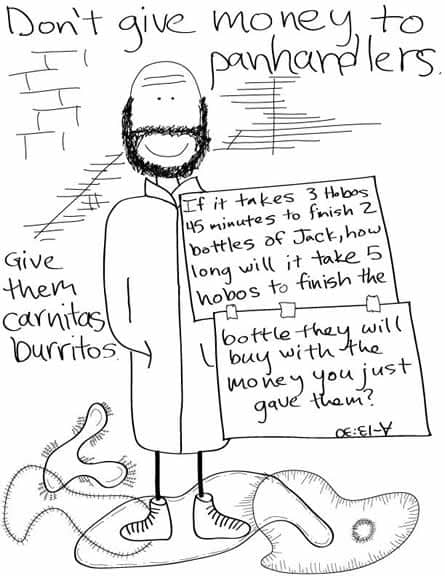 Don't give money to
panhandlers.
If it takes 3 Hobos
45 minutes to finish 2
bottles of Jack, how
long will it take 5
hobos to finish the
bottle they will
buy with the
money you just
gave them?
A-13:30
Give
them
carnitas
burritos.